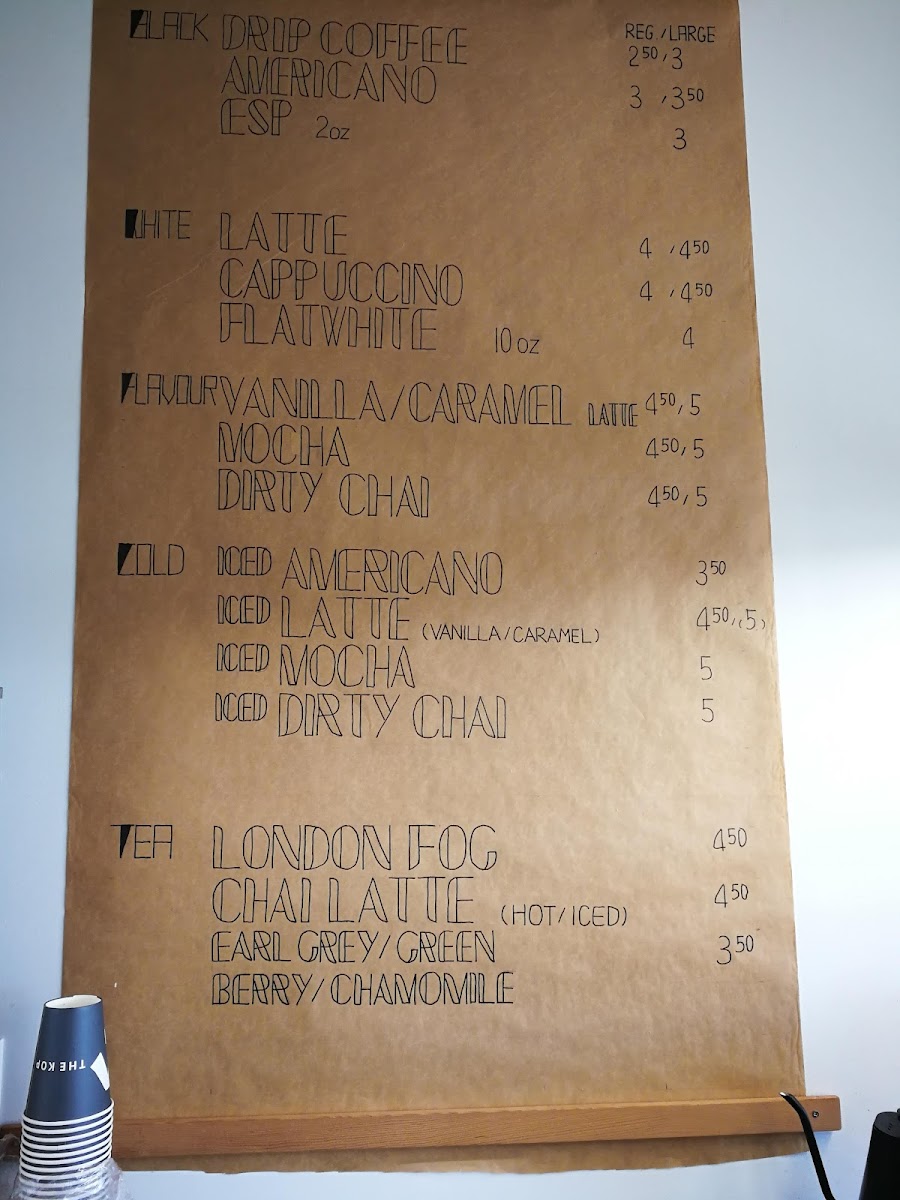 BLACK DRIP COFFEE REG / LARGE 2 50, 3
AMERICANO 3 , 3 50
ESP 2oz 3
WHITE LATTE 4 , 4 50
CAPPUCCINO 4 , 4 50
FLATWHITE 10 oz 4
FLAVOUR VANILLA/CARAMEL LATTE 4 50, 5
MOCHA 4 50, 5
DIRTY CHAI 4 50, 5
COLD ICED AMERICANO 3 50
ICED LATTE (VANILLA/CARAMEL) 4 50, (5)
ICED MOCHA 5
ICED DIRTY CHAI 5
TEA LONDON FOG 4 50
CHAI LATTE (HOT/ICED) 4 50
EARL GREY/GREEN 3 50
BERRY/CHAMOMILE
THE KOP